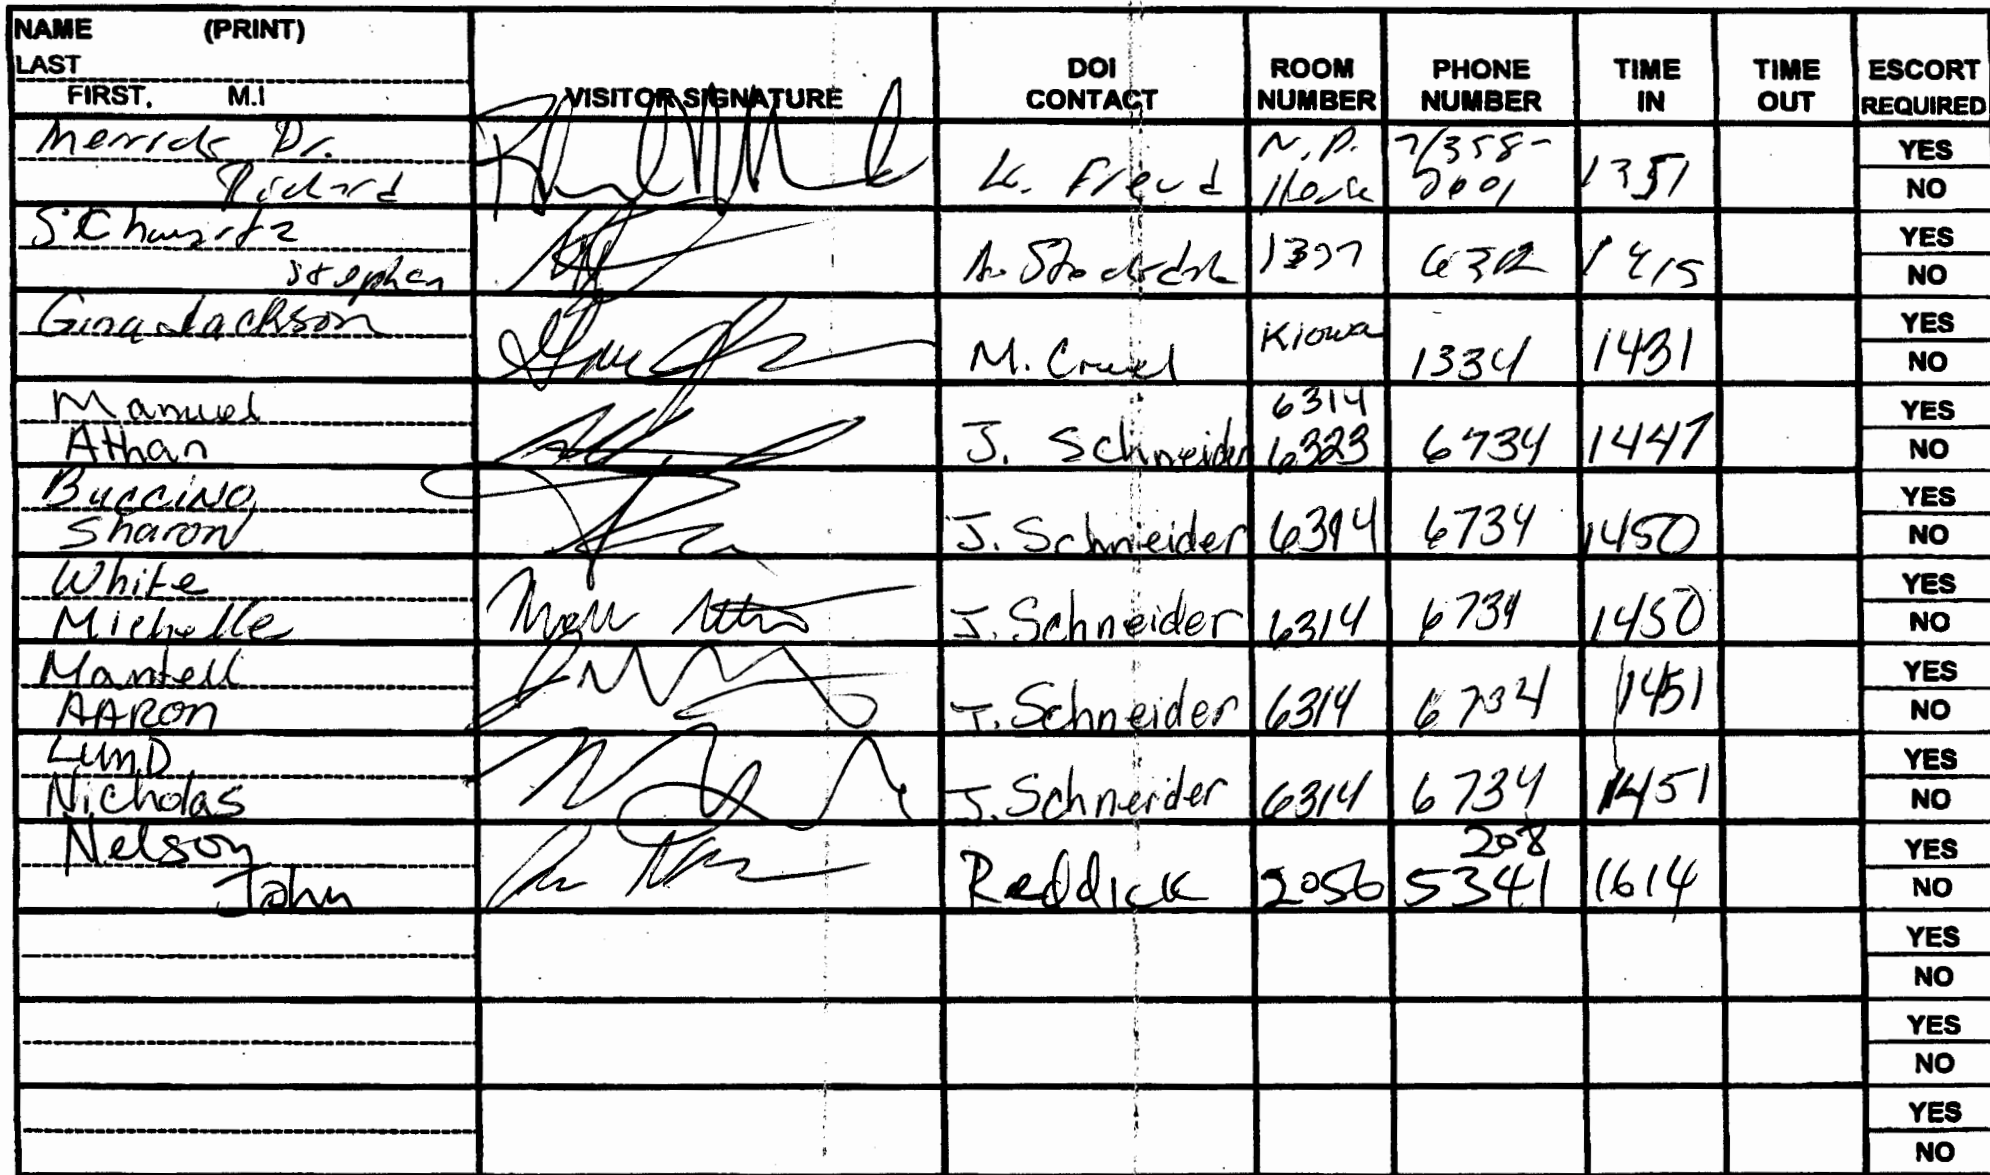 NAME (PRINT)
LAST
FIRST, M.I
VISITOR SIGNATURE
DOI CONTACT
ROOM NUMBER
PHONE NUMBER
TIME IN
TIME OUT
ESCORT REQUIRED
Merrick Dr.
Richard
K. Freud
N.P.
1351
YES
NO
Schwartz
Stephen
1415
YES
NO
Gina Jackson
M.
Kiowa
1334
1431
YES
NO
Manuel
Athan
J. Schneider
6314
6323
6734
1447
YES
NO
Buccino
Sharon
J. Schneider
6314
6734
1450
YES
NO
White
Michelle
J. Schneider
6314
6734
1450
YES
NO
Mantell
AARON
J. Schneider
6314
6734
1451
YES
NO
LunD
Nicholas
J. Schneider
6314
6734
1451
YES
NO
Nelson
John
Reddick
2056
208
5341
1614
YES
NO
YES
NO
YES
NO
YES
NO